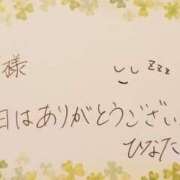 様 zzz
日はありがとうござい
ひなた